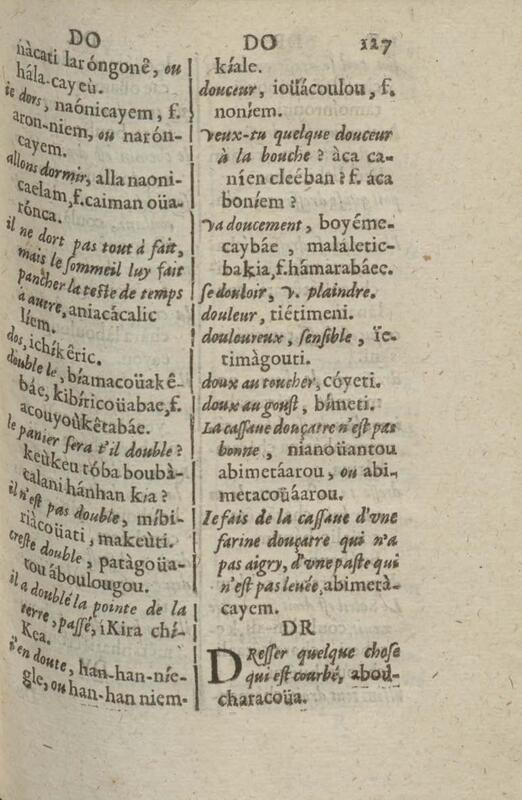 DO
nàcati laróngonê, ou
hála-cayeù.
ie dors, naónicayem, f.
aron-niem, ou narón-
cayem.
allons dormir, alla naoni-
caelam, f. caiman oüa-
rónca.
il ne dort pas tout à fait,
mais le sommeil luy fait
pancher la teste de temps
à autre, aniacácalic
líem.
dos, ichíkêric.
double le, bíamacoüakê-
báe, kibíricoüabae, f.
acouyoùkêtabáe.
le panier sera t'il double?
keùkeu tóba boubà-
calani hánhan kia?
il n'est pas double, míbi-
riàcoüati, makeùti.
creste double, patàgoüa-
tou áboulougou.
il a doublé la pointe de la
terre, passé, iKira chí-
Kea.
i'en doute, han-han-níe-
gle, ou han-han niem-
DO 127
kíale.
douceur, ioüácoulou, f.
noníem.
Veux-tu quelque douceur
à la bouche? àca ca-
níen cleéban? f. áca
boníem?
va doucement, boyéme-
caybáe, malaletic-
bakia, f. hámarabáec.
se douloir, v. plaindre.
douleur, tiétimeni.
douloureux, sensible, ïe-
timàgouti.
doux au toucher, cóyeti.
doux au goust, bímeti.
La cassaue douçatre n'est pas
bonne, nianoüantou
abimetáarou, ou abi-
metacoüáarou.
Ie fais de la cassaue d'vne
farine douçatre qui n'a
pas aigry, d'vne paste qui
n'est pas leuée, abimetà-
cayem.
DR
DResser quelque chose
qui est courbé, abou-
characoüa.